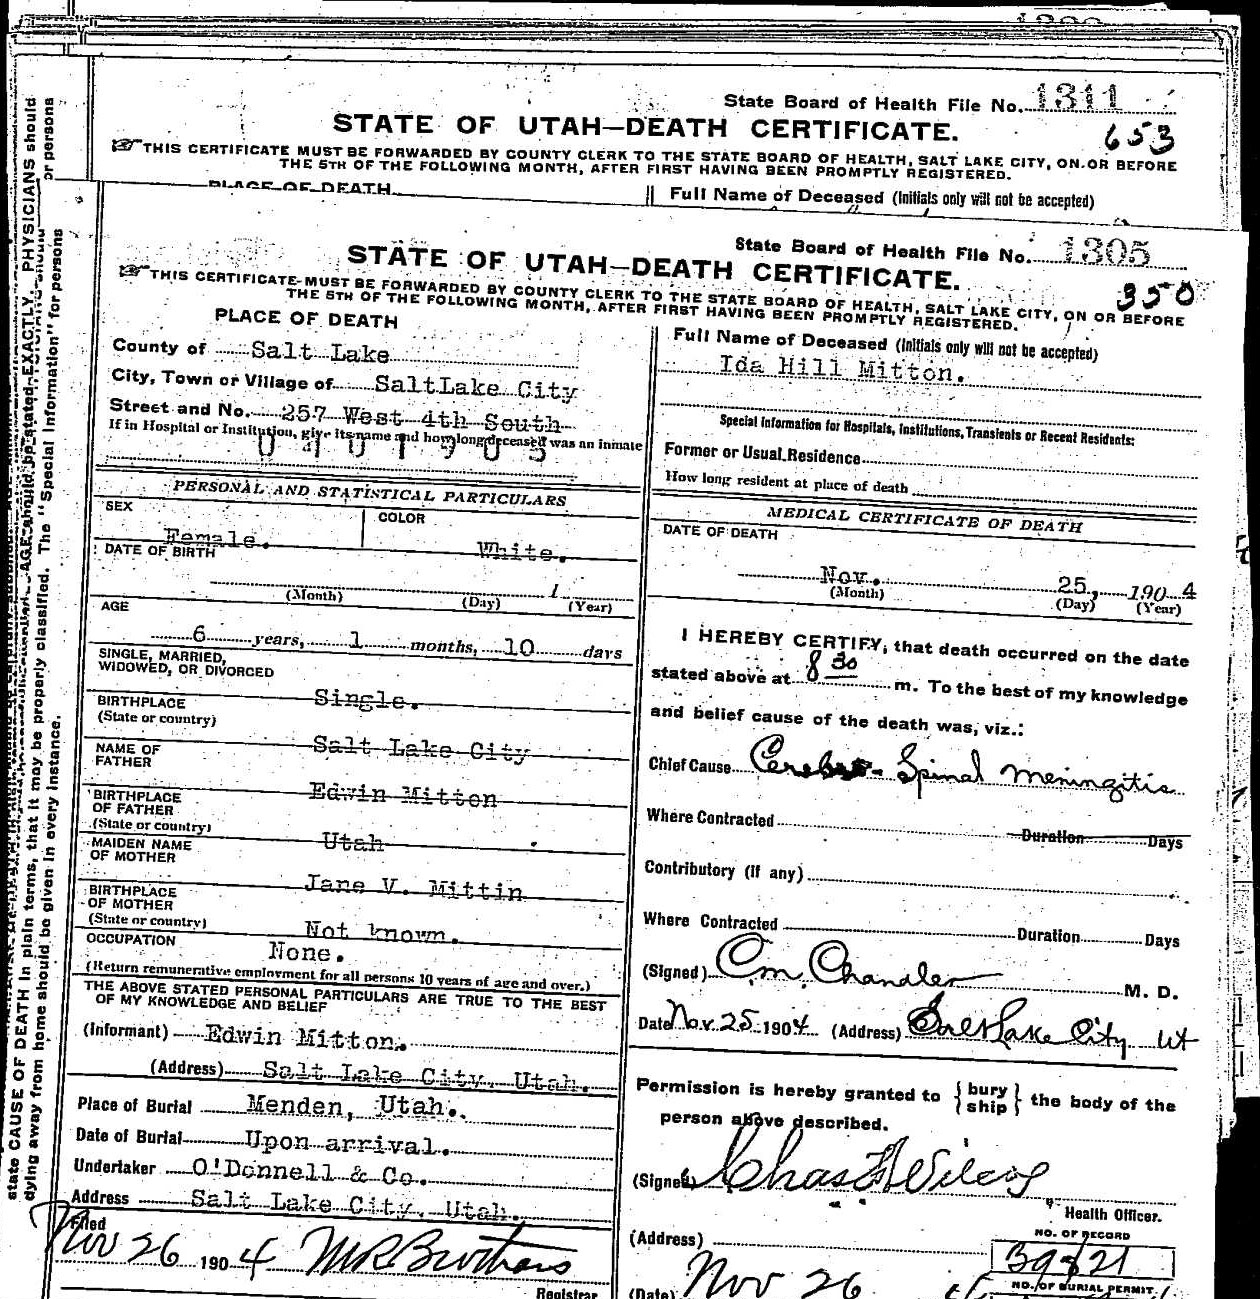 State Board of Health File No. 1311
STATE OF UTAH—DEATH CERTIFICATE.
653
THIS CERTIFICATE MUST BE FORWARDED BY COUNTY CLERK TO THE STATE BOARD OF HEALTH, SALT LAKE CITY, ON OR BEFORE
THE 5TH OF THE FOLLOWING MONTH, AFTER FIRST HAVING BEEN PROMPTLY REGISTERED.
PLACE OF DEATH
Full Name of Deceased (Initials only will not be accepted)
State Board of Health File No. 1305
STATE OF UTAH—DEATH CERTIFICATE.
350
THIS CERTIFICATE MUST BE FORWARDED BY COUNTY CLERK TO THE STATE BOARD OF HEALTH, SALT LAKE CITY, ON OR BEFORE
THE 5TH OF THE FOLLOWING MONTH, AFTER FIRST HAVING BEEN PROMPTLY REGISTERED.
PLACE OF DEATH
County of Salt Lake
City, Town or Village of SaltLake City
Street and No. 257 West 4th South
If in Hospital or Institution, give its name and how long deceased was an inmate
0401905
PERSONAL AND STATISTICAL PARTICULARS
SEX
COLOR
Female. White.
DATE OF BIRTH
1
(Month) (Day) (Year)
AGE
6 years, 1 months, 10 days
SINGLE, MARRIED,
WIDOWED, OR DIVORCED
Single.
BIRTHPLACE
(State or country)
Salt Lake City
NAME OF
FATHER
Edwin Mitton
BIRTHPLACE
OF FATHER
(State or country)
Utah
MAIDEN NAME
OF MOTHER
Jane V. Mittin
BIRTHPLACE
OF MOTHER
(State or country)
Not known.
OCCUPATION
None.
(Return remunerative employment for all persons 10 years of age and over.)
THE ABOVE STATED PERSONAL PARTICULARS ARE TRUE TO THE BEST
OF MY KNOWLEDGE AND BELIEF
(Informant) Edwin Mitton.
(Address) Salt Lake City, Utah.
Place of Burial Menden, Utah.
Date of Burial Upon arrival.
Undertaker O'Donnell & Co.
Address Salt Lake City, Utah.
Filed
Nov 26 1904
Registrar
Full Name of Deceased (Initials only will not be accepted)
Ida Hill Mitton.
Special Information for Hospitals, Institutions, Transients or Recent Residents:
Former or Usual Residence
How long resident at place of death
MEDICAL CERTIFICATE OF DEATH
DATE OF DEATH
Nov. 25, 1904
(Month) (Day) (Year)
I HEREBY CERTIFY, that death occurred on the date
stated above at 8 30 m. To the best of my knowledge
and belief cause of the death was, viz.:
Chief Cause Cerebro-Spinal Meningitis
Where Contracted Duration Days
Contributory (if any)
Where Contracted Duration Days
(Signed) C.M. Chandler M. D.
Date Nov 25 1904 (Address) Salt Lake City Ut
Permission is hereby granted to { bury ship } the body of the
person above described.
(Signed)
Health Officer.
(Address)
NO. OF RECORD
NO. OF BURIAL PERMIT
(Date) Nov 26
state CAUSE OF DEATH in plain terms, that it may be properly classified. The "Special Information" for persons
dying away from home should be given in every instance.